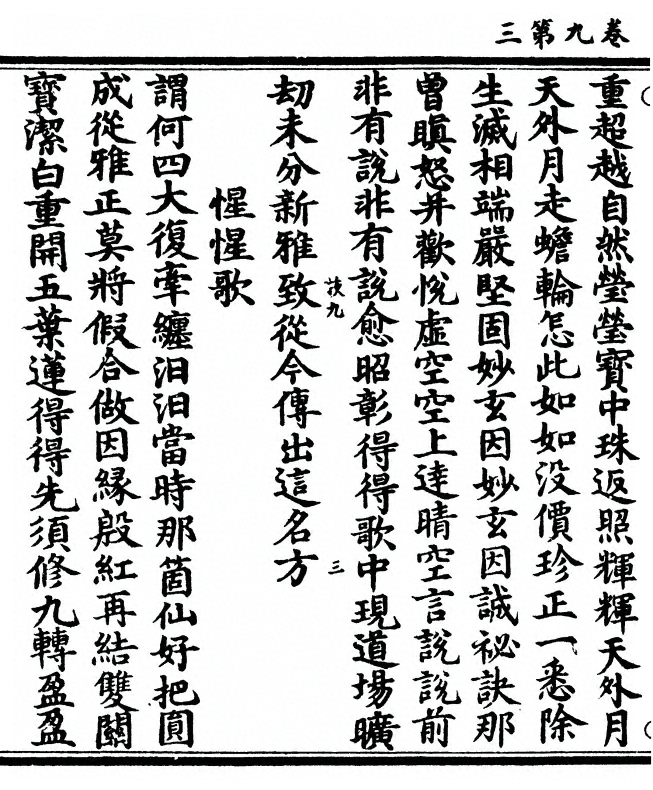 卷九第三
重超越自然瑩瑩寶中珠返照輝輝天外月
天外月走蟾輪怎此如如没價珍正一悉除
生滅相端嚴堅固妙玄因妙玄因誠祕訣那
曾瞋怒并歡悅虛空空上達晴空言說說前
非有說非有說愈昭彰得得歌中現道場曠
九 三
刧未分新雅致從今傳出這名方
惺惺歌
謂何四大復牽纏汨汨當時那箇仙好把圓
成從雅正莫將假合做因緣殷紅再結雙關
寶潔白重開五葉蓮得得先須修九轉盈盈